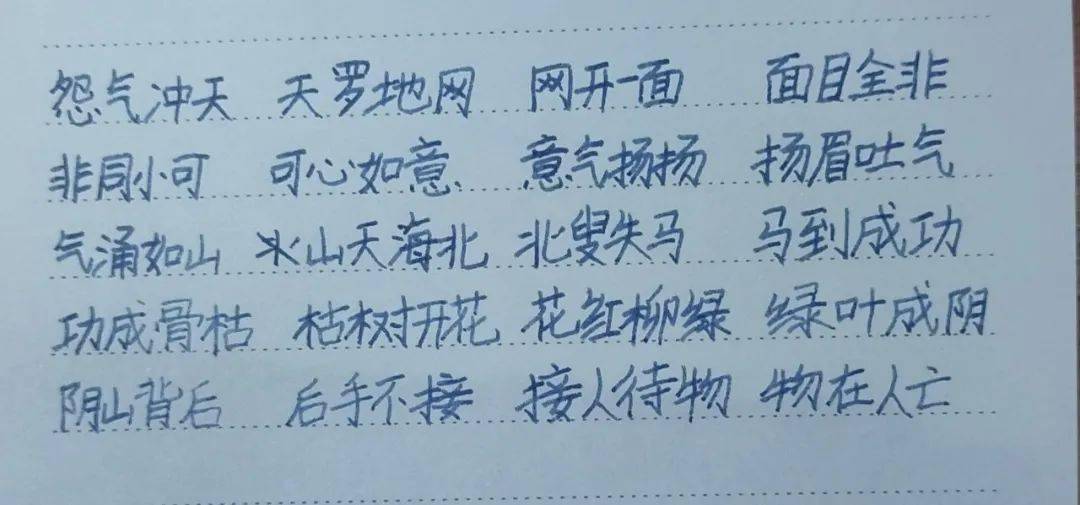 怨气冲天 天罗地网 网开一面 面目全非
非同小可 可心如意 意气扬扬 扬眉吐气
气涌如山 氷山天海北 北叟失马 马到成功
功成骨枯 枯树开花 花红柳绿 绿叶成阴
阴山背后 后手不接 接人待物 物在人亡